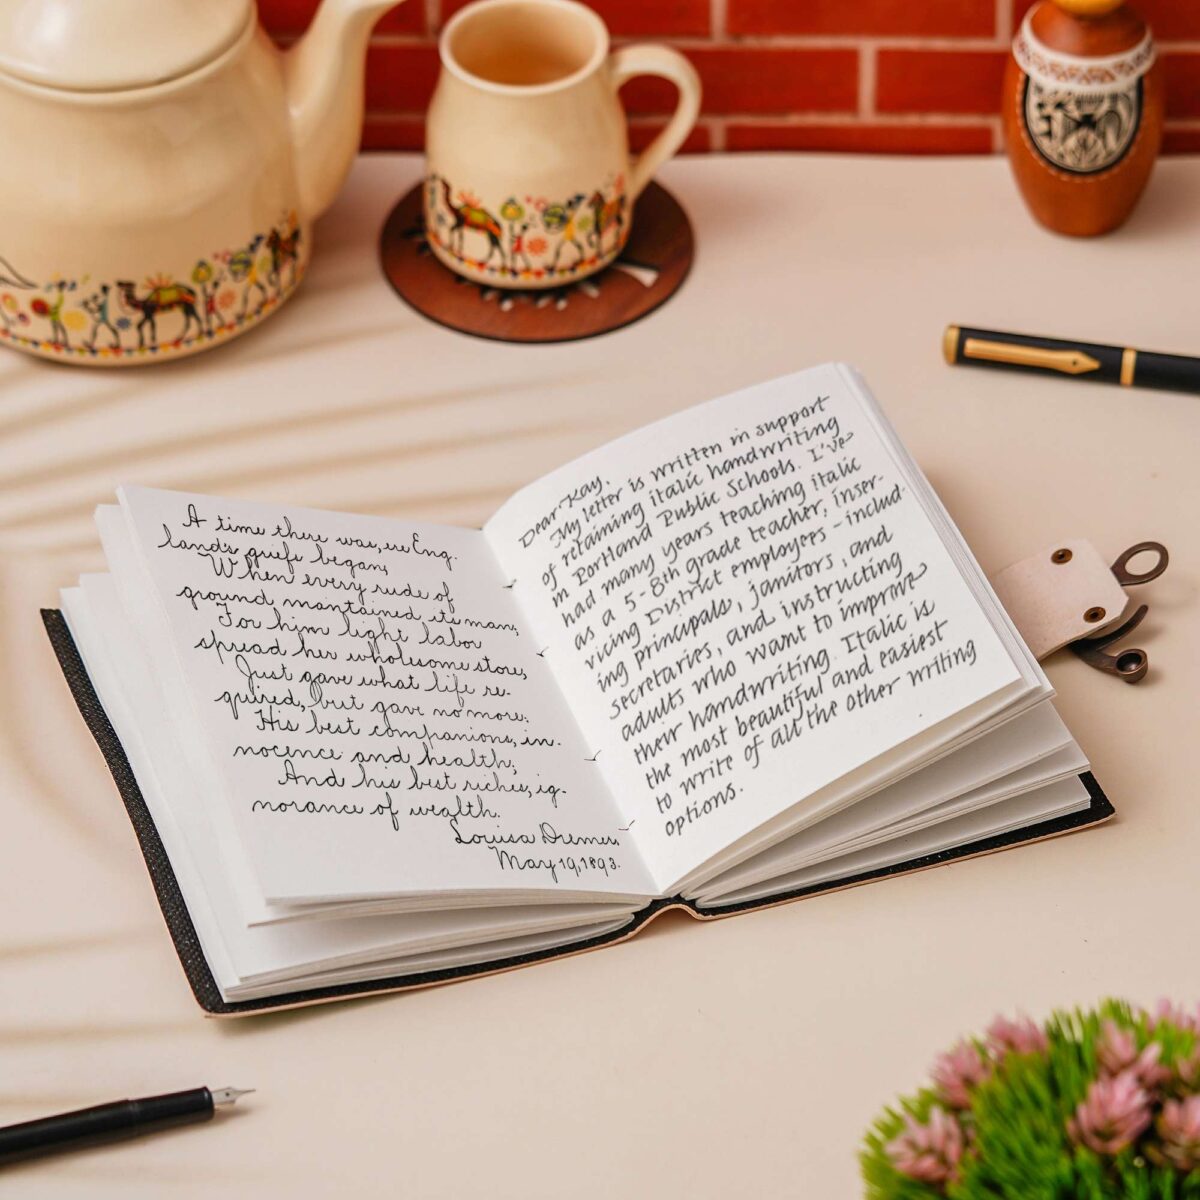 A time there was, ere Eng-
lands griefs began,
When every rude of
ground maintained its man;
For him light labor
spread her wholesome store,
Just gave what life re-
quired, but gave no more:
His best companions, in-
nocence and health;
And his best riches, ig-
norance of wealth.
Louisa
May 19, 1893.
Dear Kay,
My letter is written in support
of retaining italic handwriting
in Portland Public Schools. I've
had many years teaching italic
as a 5-8th grade teacher, inser-
vicing District employees - includ-
ing principals, janitors, and
secretaries, and instructing
adults who want to improve
their handwriting. Italic is
the most beautiful and easiest
to write of all the other writing
options.